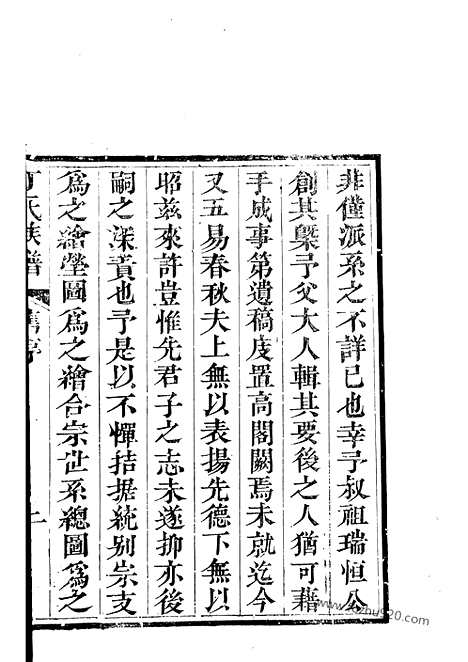 非僅派系之不詳已也幸予叔祖瑞恒公
創其槩予父大人輯其要後之人猶可藉
手成事第遺稿庋置高閣闕焉未就迄今
又五易春秋夫上無以表揚先德下無以
昭兹來許豈惟先君子之志未遂抑亦後
嗣之深責也予是以不憚拮据統别宗支
為之繪塋圖為之繪合宗世系總圖為之
丁氏族譜 舊序 二